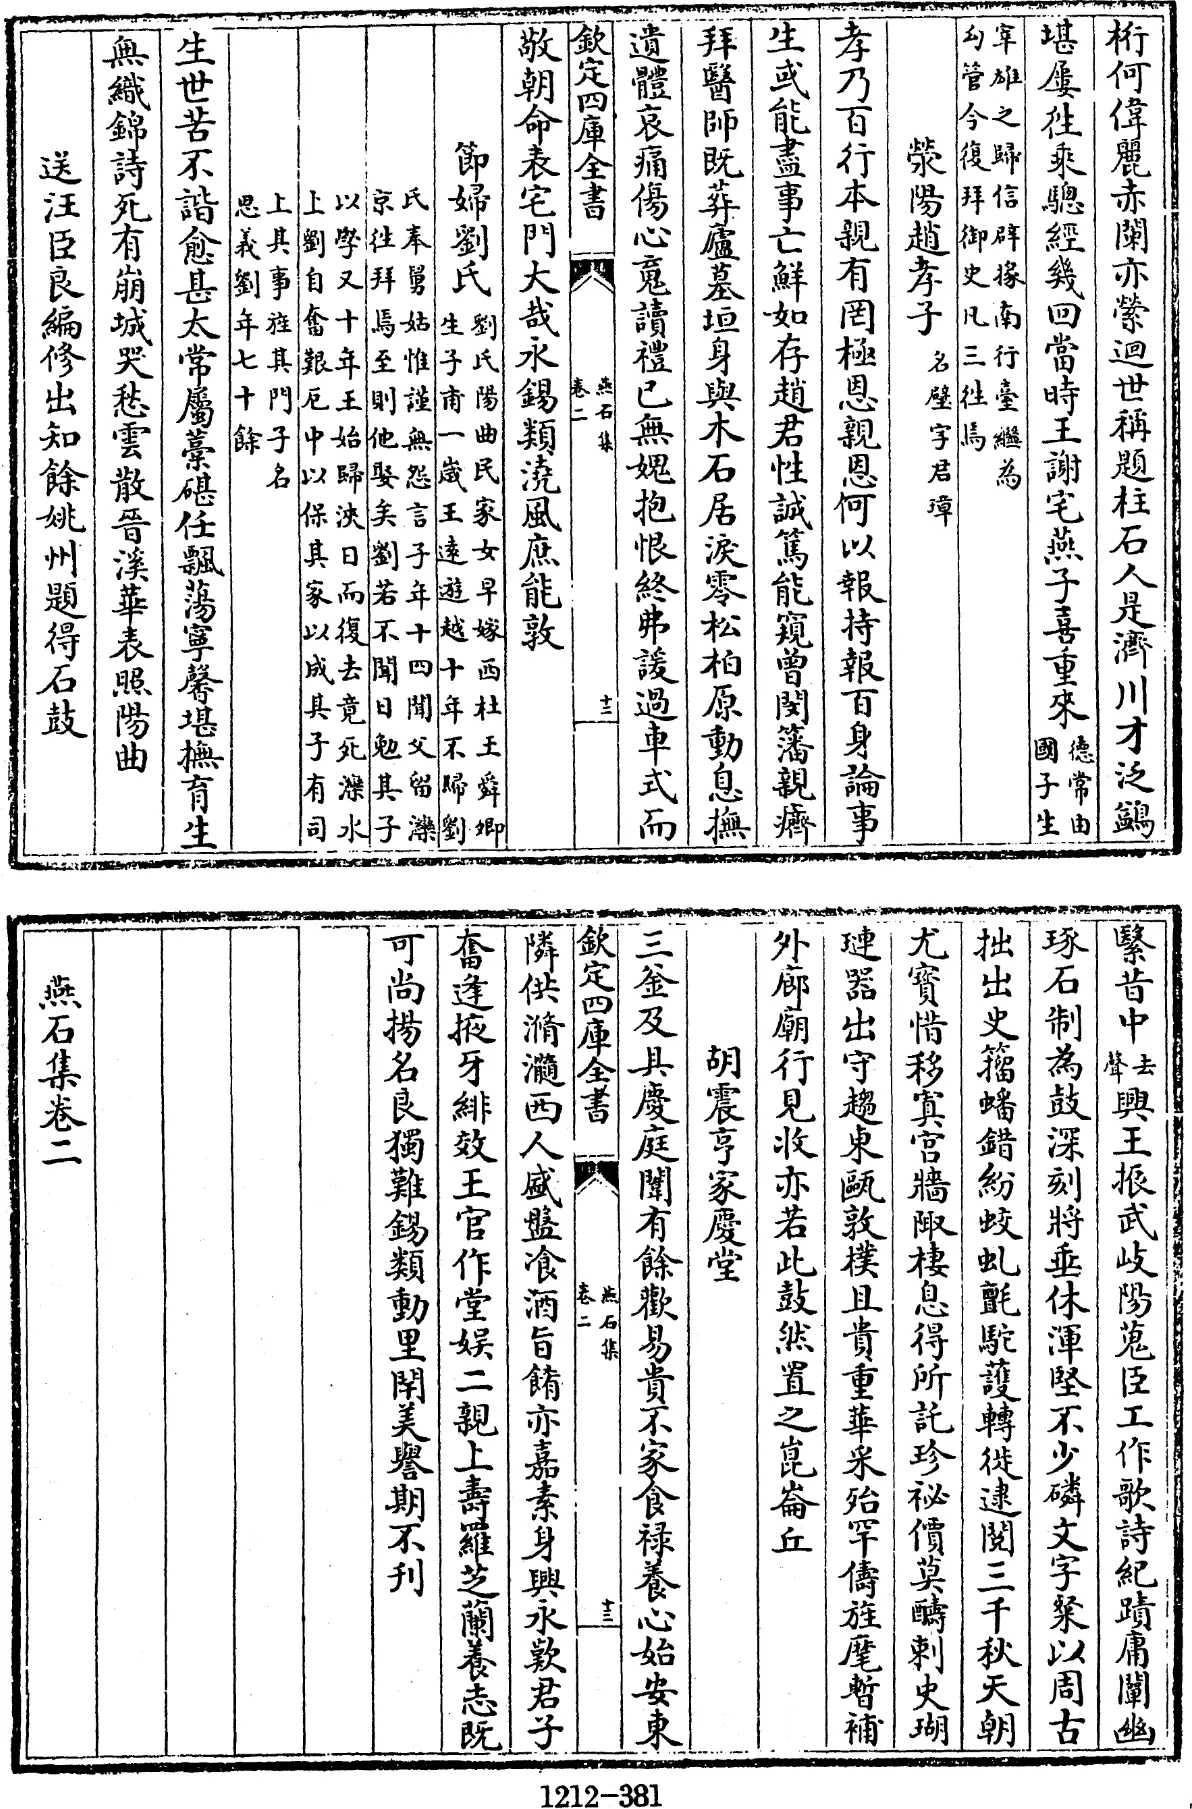 桁何偉麗赤闌亦縈迴世稱題柱石人是濟川才泛鷁
堪屢徃乘驄經幾回當時王謝宅燕子喜重來德常由
國子生
宰雄之歸信辟掾南行臺繼為
勾管今復拜御史凡三徃焉
滎陽趙孝子名璧字君璋
孝乃百行本親有罔極恩親恩何以報持報百身論事
生或能盡事亡鮮如存趙君性誠篤能窺曾閔籓親癠
拜醫師既葬廬墓垣身與木石居淚零松柏原動息撫
遺體哀痛傷心䰟讀禮已無媿抱恨終弗諼過車式而
欽定四庫全書
燕石集
卷二
十二
敬朝命表宅門大哉永錫類澆風庶能敦
節婦劉氏劉氏陽曲民家女早嫁西杜王舜卿
生子甫一歲王遠遊越十年不歸劉
氏奉舅姑惟謹無怨言子年十四聞父留灤
京徃拜焉至則他娶矣劉若不聞日勉其子
以學又十年王始歸浹日而復去竟死灤水
上劉自奮艱厄中以保其家以成其子有司
上其事旌其門子名
思義劉年七十餘
生世苦不諧愈甚太常屬藁碪任飄蕩寧馨堪撫育生
無織錦詩死有崩城哭愁雲散晉溪華表照陽曲
送汪臣良編修出知餘姚州題得石鼓
繄昔中去聲興王振武岐陽蒐臣工作歌詩紀蹟庸闡幽
琢石制為鼓深刻將垂休渾堅不少磷文字粲以周古
拙出史籀蟠錯紛蛟虬氈駝護轉徙逮閱三千秋天朝
尤寳惜移寘宫牆陬棲息得所託珍祕價莫醻刺史瑚
璉器出守趨東甌敦樸且貴重華采殆罕儔旌麾暫補
外廊廟行見收亦若此鼓然置之崑崙丘
胡震亨家慶堂
三釡及具慶庭闈有餘歡易貴不家食禄養心始安東
欽定四庫全書
燕石集
卷二
十三
隣供滫瀡西人盛盤飡酒旨餚亦嘉素身興永歎君子
奮逢掖牙緋效王官作堂娱二親上壽羅芝蘭養志既
可尚揚名良獨難錫類動里閈美譽期不刊
燕石集卷二
1212-381